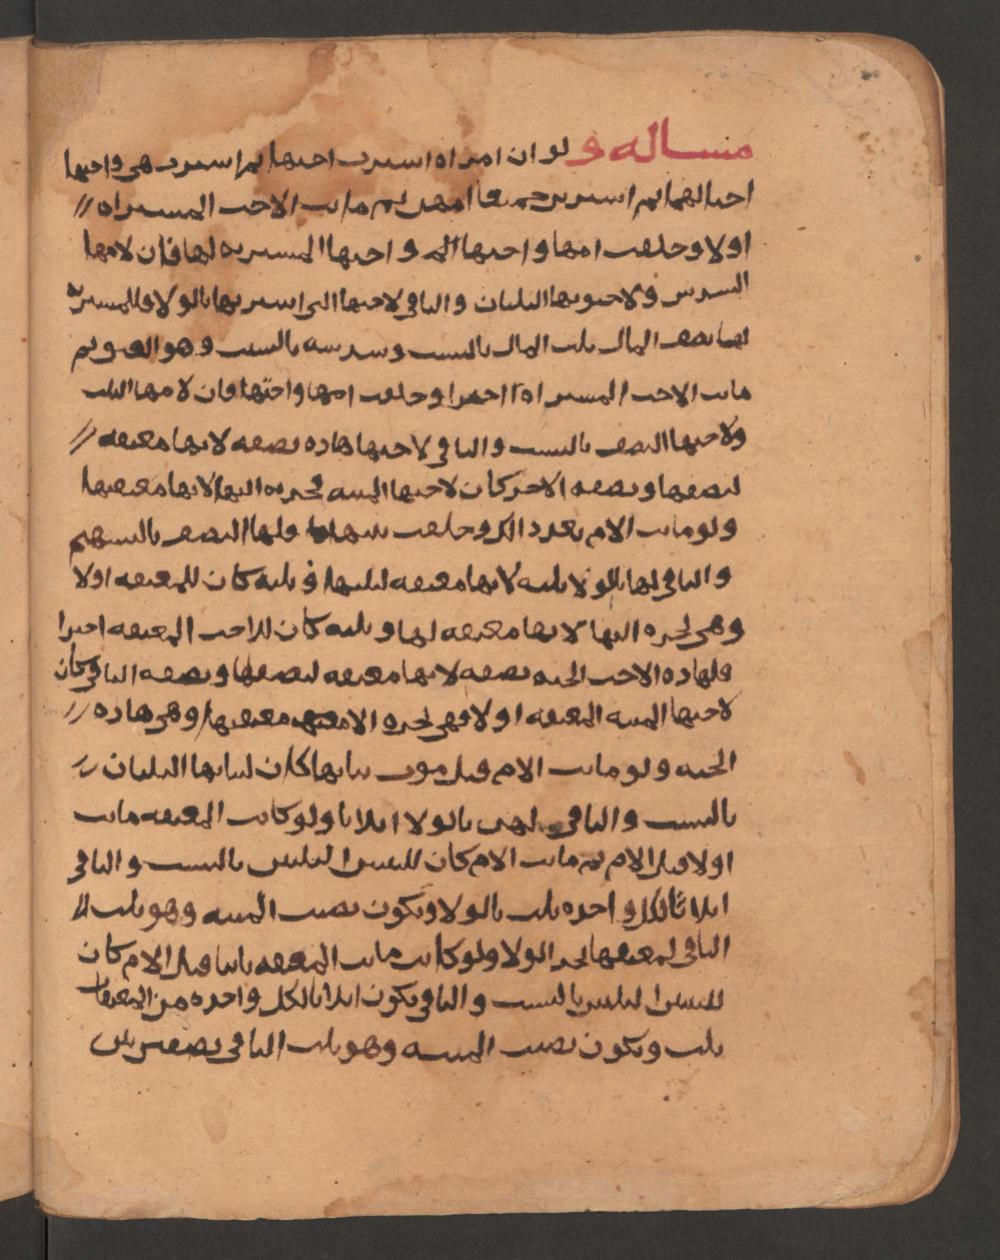 مساله ولو ان امراه اشترت اختها ثم اشترت هي واختها
اختا لهما ثم اشترين جميعا امهن ثم ماتت الاخت المشتراه
اولا وخلفت امها واختها واختها المشتريه لها فان لامها
السدس ولاختيها الثلثان والباقي لاختها التي اشترتها بالولا فللمشتريه
لها نصف المال ثلث المال بالنسب وسدسه بالنسب وهو ثم
ماتت الاخت المشتراه اخيرا وخلفت امها واختها فان لامها الثلث
ولاختها النصف بالنسب والباقي لاختها هاذه نصفه لانها معتقه
لنصفها ونصفه الاخر كان لاختها الميته فجره اليها لانها معتقتها
ولو ماتت الام بعد ذالك وخلفت بنتها فلها النصف بالسهم
والباقي لها بالولا ثلثه لانها معتقه لثلثها وثلثه كان للمعتقه اولا
وهي تجره اليها لانها معتقه لها وثلثه كان للاخت المعتقه اخيرا
فلهاذه الاخت الحيه نصفه لانها معتقه لنصفها ونصفه الباقي كان
لاختها الميته المعتقه اولا فهي تجره الا معتقتها وهي هاذه
الحيه ولو ماتت الام قبل موت بناتها كان لبناتها الثلثان
بالنسب والباقي لهن بالولا اثلاثا ولو كانت المعتقه ماتت
اولا قبل الام ثم ماتت الام كان للبنتين الثلثين بالنسب والباقي
اثلاثا لكل واحده ثلث بالولا ويكون نصيب الميته وهو ثلث
الباقي لمعتقها بجر الولا ولو كانت ماتت المعتقه ثانيا قبل الام كان
للبنتين الثلثين بالنسب والباقي يكون اثلاثا لكل واحده من المعتقات
ثلث ويكون نصيب الميته وهو ثلث الباقي نصفين بين